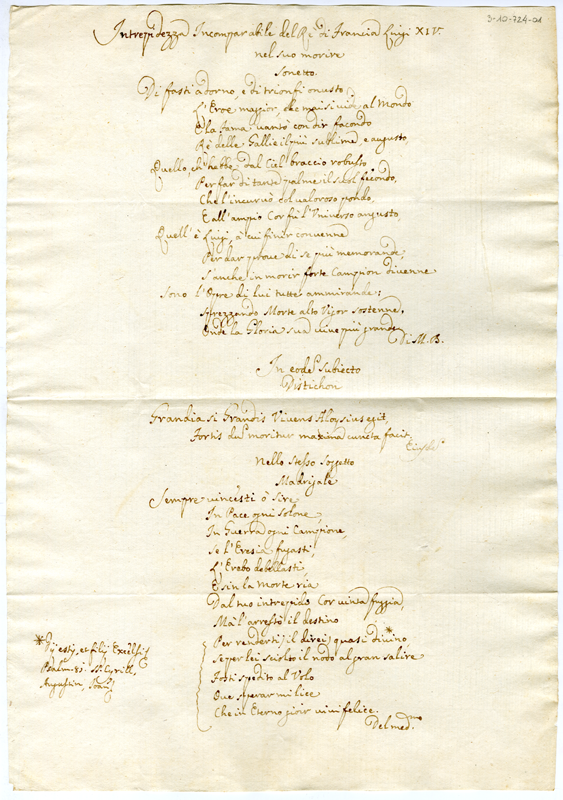 3-10-724-01
Intrepidezza Incomparabile del Rè di Francia Luigi XIV.
nel suo morire
Sonetto.
Di fasti adorno, e di trionfi onusto,
L'Eroe maggior, che mai si vide al Mondo
E la fama vantò con dir facondo
Rè delle Gallie il più sublime, e augusto,
Quello, ch'hebbe dal Ciel braccio robusto
Per far di tante palme il suol fecondo,
Che l'incurvò col valoroso pondo,
E all'ampio Cor fù l'Universo angusto,
Quell'è Luigi, à cui finir convenne
Per dar prove di se più memorande;
S'anche in morir forte Campion divenne
Sono l'Opre di lui tutte ammirande;
Sprezzando Morte alto Vigor sostenne,
Onde la Gloria sua vive più grande
Di M. B.
In eodē Subiecto
Distichon
Grandia si Grandis Vivens Aloysius egit,
Fortis dū moritur maxima cuncta facit.
Eiusdē
Nello stesso Soggetto
Madrigale
Sempre vincesti ò Sire
In Pace ogni Solone,
In Guerra ogni Campione,
Se l'Eresia fugasti,
L'Erebo debellasti,
E sin la Morte ria
Dal tuo intrepido Cor vinta fuggia,
Ma il'arrestò il destino
Per renderti, il direi, quasi divino*
Se per lei sciolto il nodo al gran salire
Fosti spedito al Volo
Ove sperar mi lice
Che in Eterno gioir vivi felice.
Del med.mo
*Dij estis, et filij Excelsi
Psalm. 81. St. Cyrill,
Augustin,